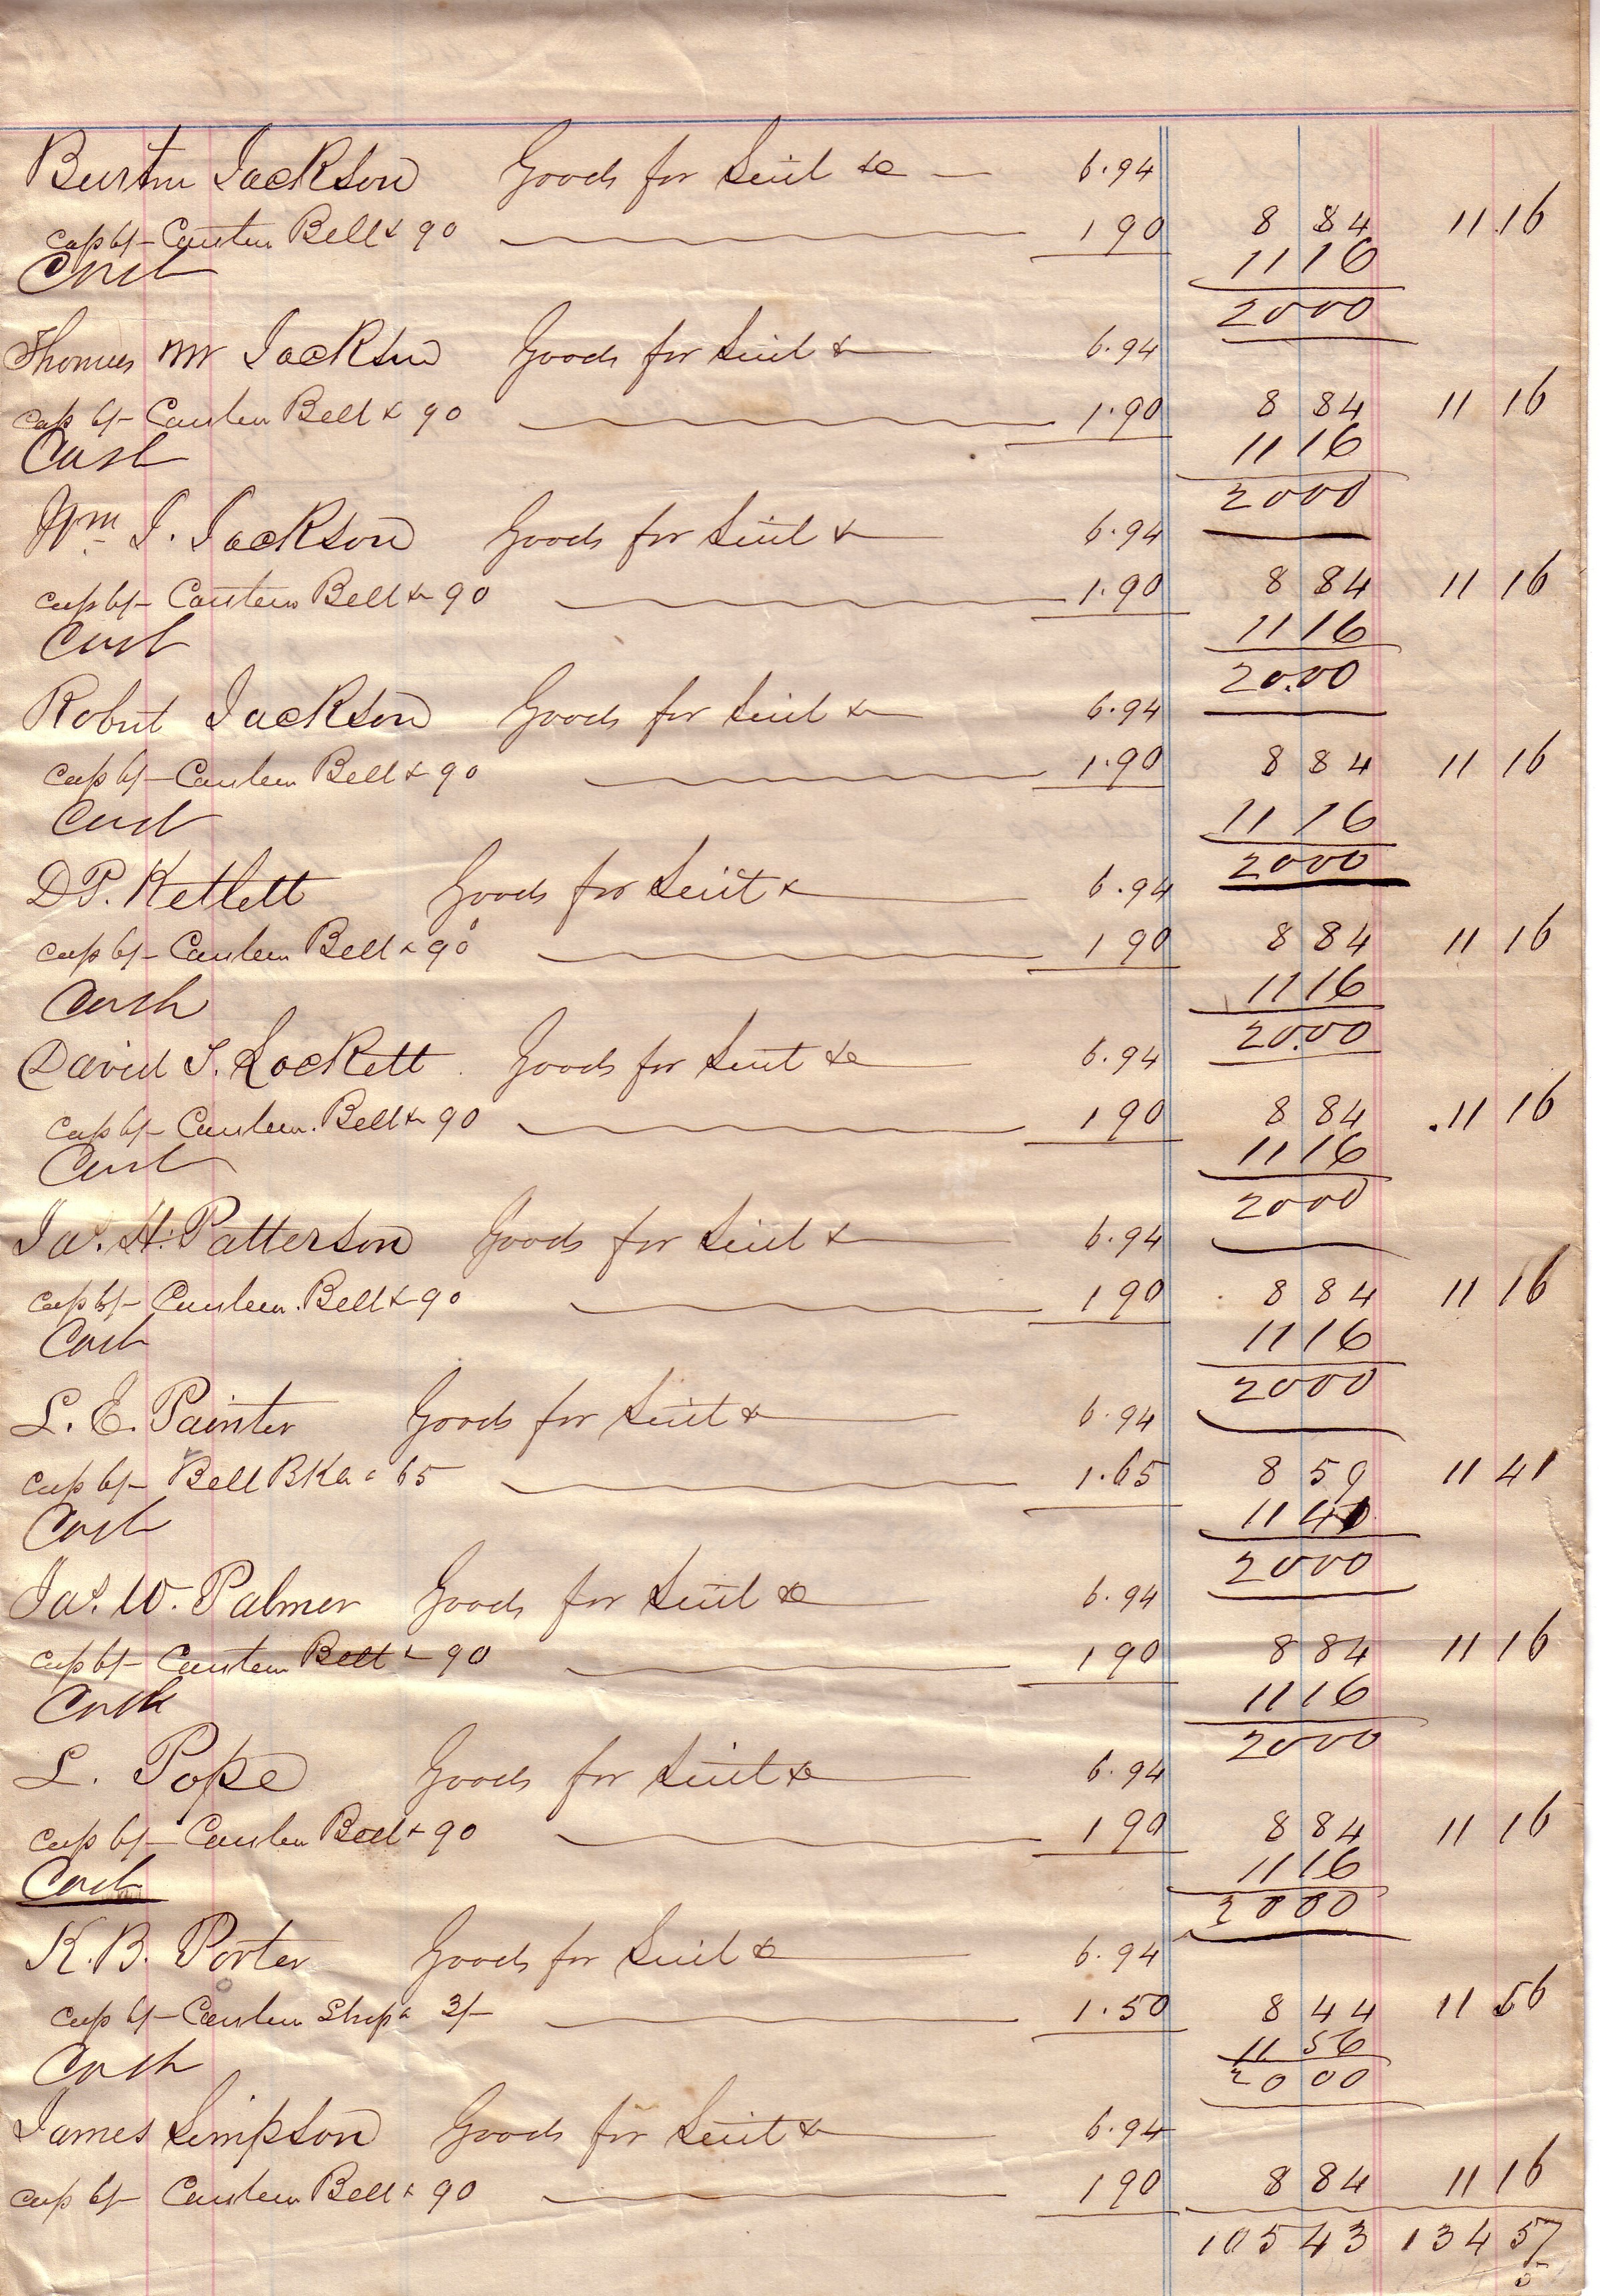 Burton Jackson Goods for Suit &c — 6.94
cap 6/- Canteen Belt & 90 1 90 8 84 11.16
Cash 11 16
20 00
Thomas M Jackson Goods for Suit & 6.94
cap 6/- Canteen Belt & 90 1.90 8 84 11 16
Cash 11 16
20 00
Wm J. Jackson Goods for Suit & 6.94
cap 6/- Canteen Belt & 90 1.90 8 84 11 16
Cash 11 16
20.00
Robert Jackson Goods for Suit & 6.94
cap 6/- Canteen Belt & 90 1.90 8 84 11 16
Cash 11 16
20 00
D P. Ketlett Goods for Suit & 6.94
cap 6/- Canteen Belt & 90 1 90 8 84 11 16
Cash 11 16
20.00
David S. Lockett Goods for Suit &c 6.94
cap 6/- Canteen. Belt & 90 1 90 8 84 11 16
Cash 11 16
20 00
Jas. H. Patterson Goods for Suit & 6.94
cap 6/- Canteen. Belt & 90 1 90 8 84 11 16
Cash 11 16
20 00
L. E. Painter Goods for Suit & 6.94
cap 6/- Belt & 65 1.65 8 59 11 41
Cash 11 41
20 00
Jas. W. Palmer Goods for Suit &c 6.94
cap 6/- Canteen Belt & 90 1 90 8 84 11 16
Cash 11 16
20 00
L. Pope Goods for Suit &c 6.94
cap 6/- Canteen Belt & 90 1 90 8 84 11 16
Cash 11 16
20 00
K. B. Porter Goods for Suit & 6.94
cap 6/- Canteen Strap & 3/- 1.50 8 44 11 56
Cash 11 56
20 00
James Simpson Goods for Suit & 6.94
cap 6/- Canteen Belt & 90 1 90 8 84 11 16
105 43 134 57